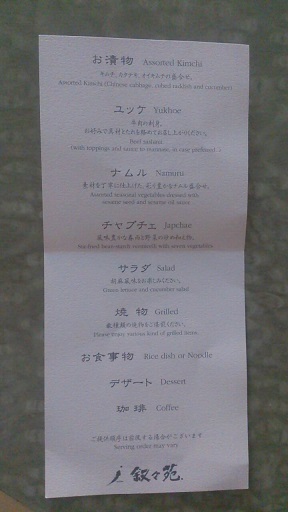 お漬物 Assorted Kimchi
キムチ、カクテキ、オイキムチの盛合せ。
Assorted Kimchi (Chinese cabbage, cubed radish and cucumber)
ユッケ Yukhoe
牛肉の刺身。
Beef sashimi.
(with toppings and sauce to marinate, in your preference.)
ナムル Namuru
Assorted seasonal vegetables dressed with
sesame seed and sesame oil sauce
チャプチェ Japchae
Stir-fried bean starch vermicelli with seven vegetables
サラダ Salad
Green lettuce and cucumber salad
焼物 Grilled
Please enjoy various kind of grilled items.
お食事物 Rice dish or Noodle
デザート Dessert
珈琲 Coffee
ご提供順序は前後する場合がございます
Serving order may vary
叙々苑